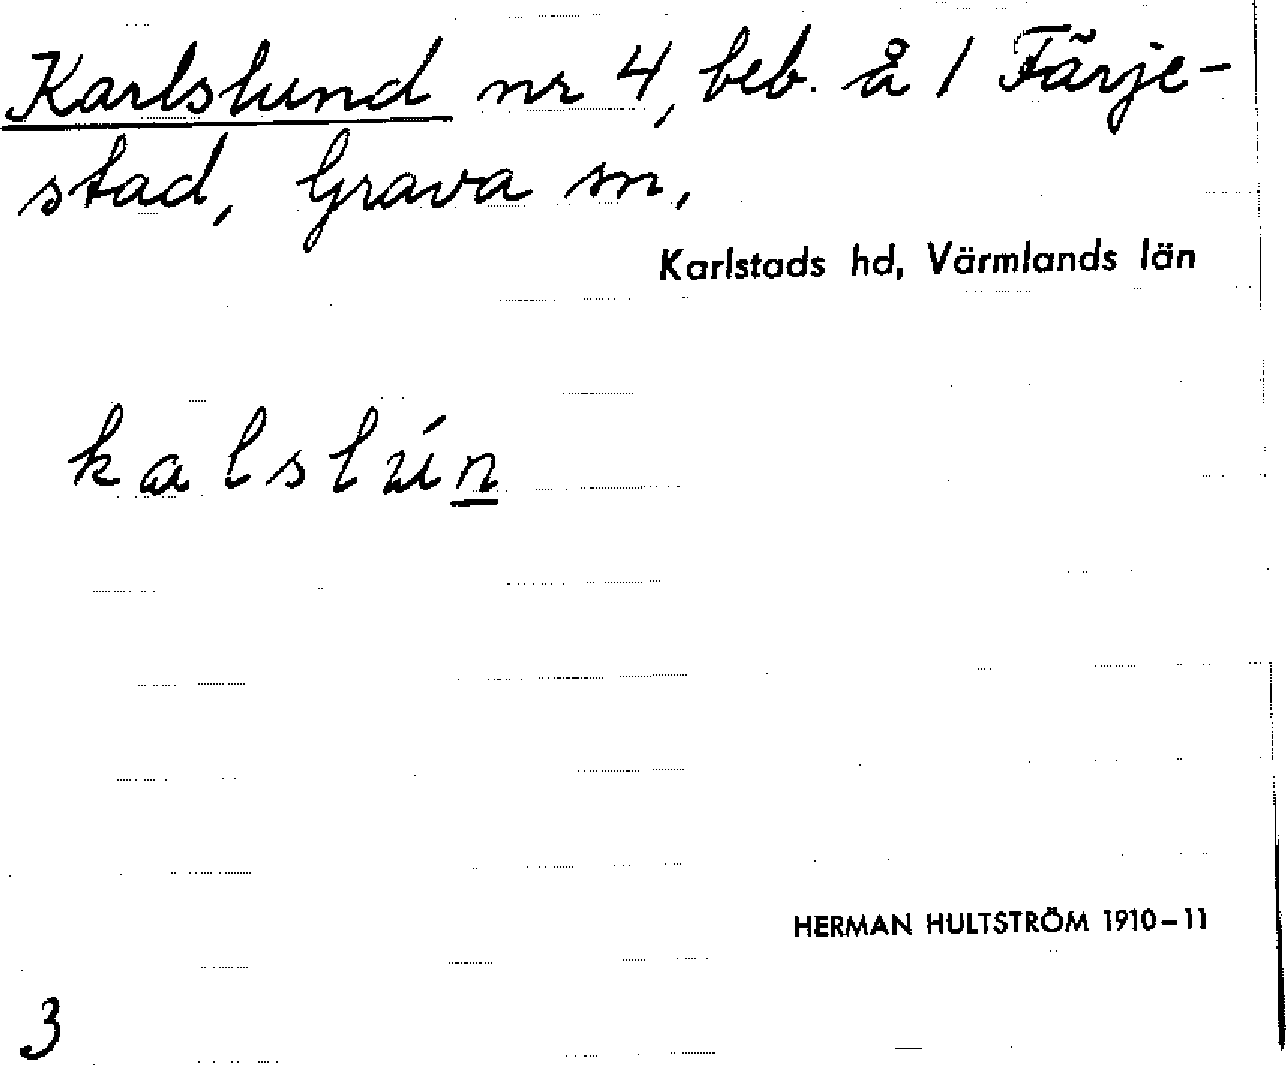 Karlslund nr 4, beb. å 1 Färje-
stad, Grava sn,
Karlstads hd, Värmlands län
kalslún
HERMAN HULTSTRÖM 1910-11
3